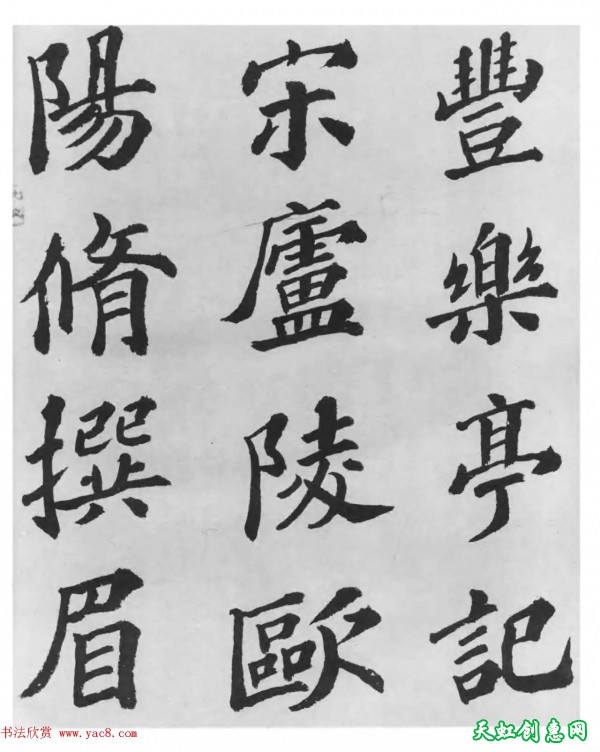 豐樂亭記
宋廬陵歐
陽脩撰眉
书法欣赏 www.yac8.com
天虹创惠网